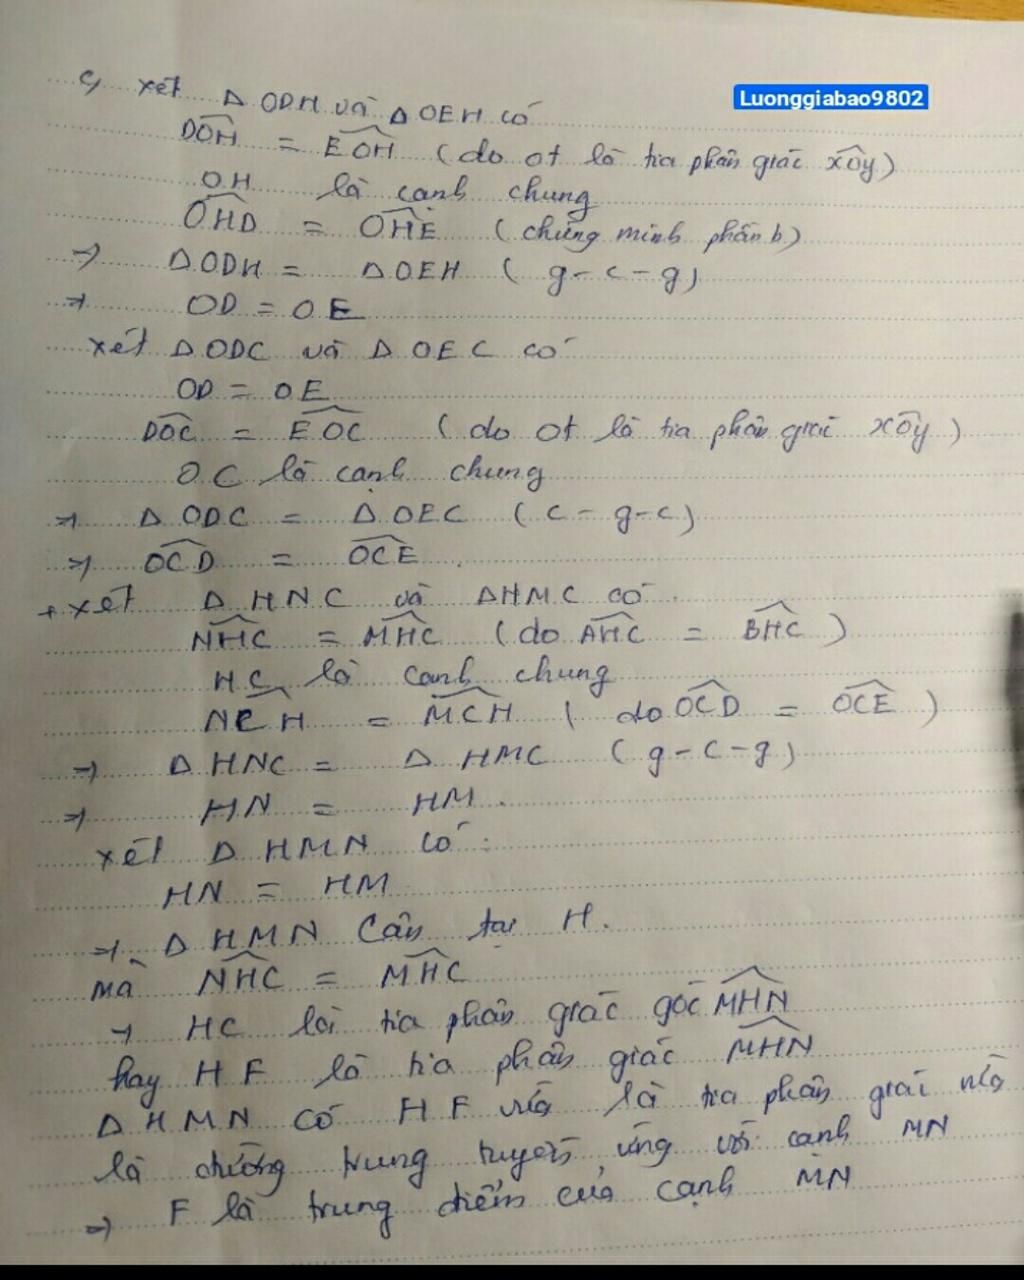 c, xét Δ ODH và Δ OEH có
Luonggiabao9802
DOH = EOH (do ot là tia phân giác xOy)
OH là cạnh chung
OHD = OHE (chứng minh phần b)
=> Δ ODH = Δ OEH (g-c-g)
=> OD = OE
xét Δ ODC và Δ OEC có
OD = OE
DOC = EOC (do ot là tia phân giác xOy)
OC là cạnh chung
=> Δ ODC = Δ OEC (c-g-c)
=> OCD = OCE
+ xét Δ HNC và Δ HMC có
NHC = MHC (do AHC = BHC)
HC là cạnh chung
NCH = MCH (do OCD = OCE)
=> Δ HNC = Δ HMC (g-c-g)
=> HN = HM.
xét Δ HMN có:
HN = HM
=> Δ HMN Cân tại H.
mà NHC = MHC
=> HC là tia phân giác góc MHN
hay HF là tia phân giác MHN
Δ HMN có HF vừa là tia phân giác vừa
là đường trung tuyến ứng với cạnh MN
=> F là trung điểm của cạnh MN